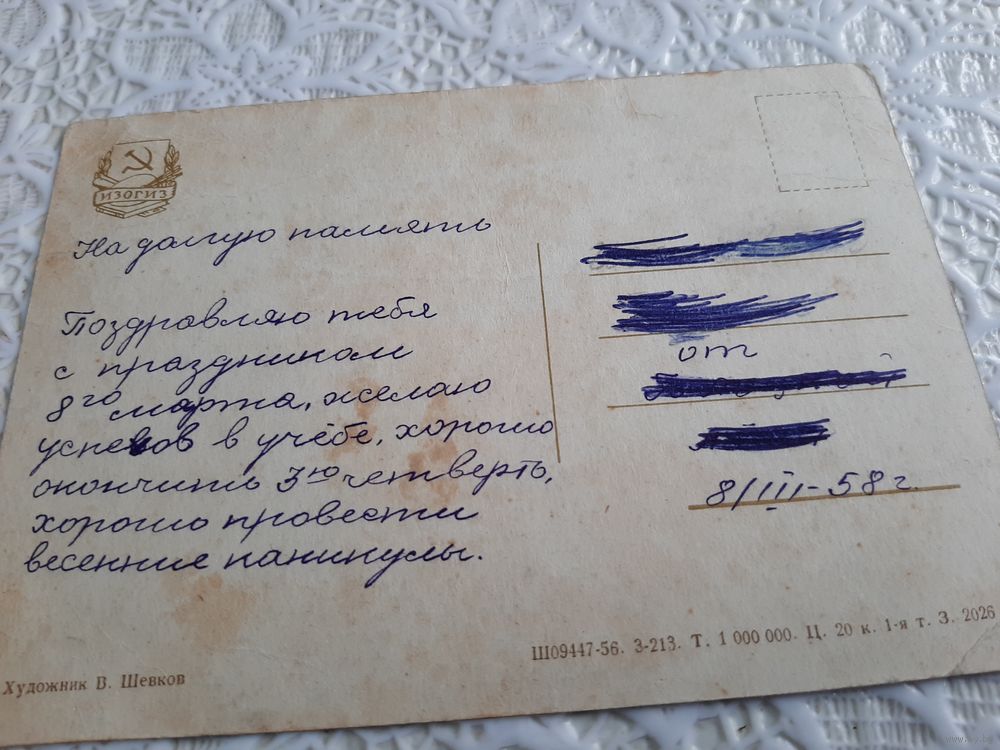 ИЗОГИЗ
На долгую память
Поздравляю тебя
с праздником
8го марта, желаю
успехов в учёбе, хорошо
окончить 3ю четверть,
хорошо провести
весенние каникулы.
от
8/III-58 г.
Художник В. Шевков
Ш09447-56. З-213. Т. 1 000 000. Ц. 20 к. 1-я т. З. 2026